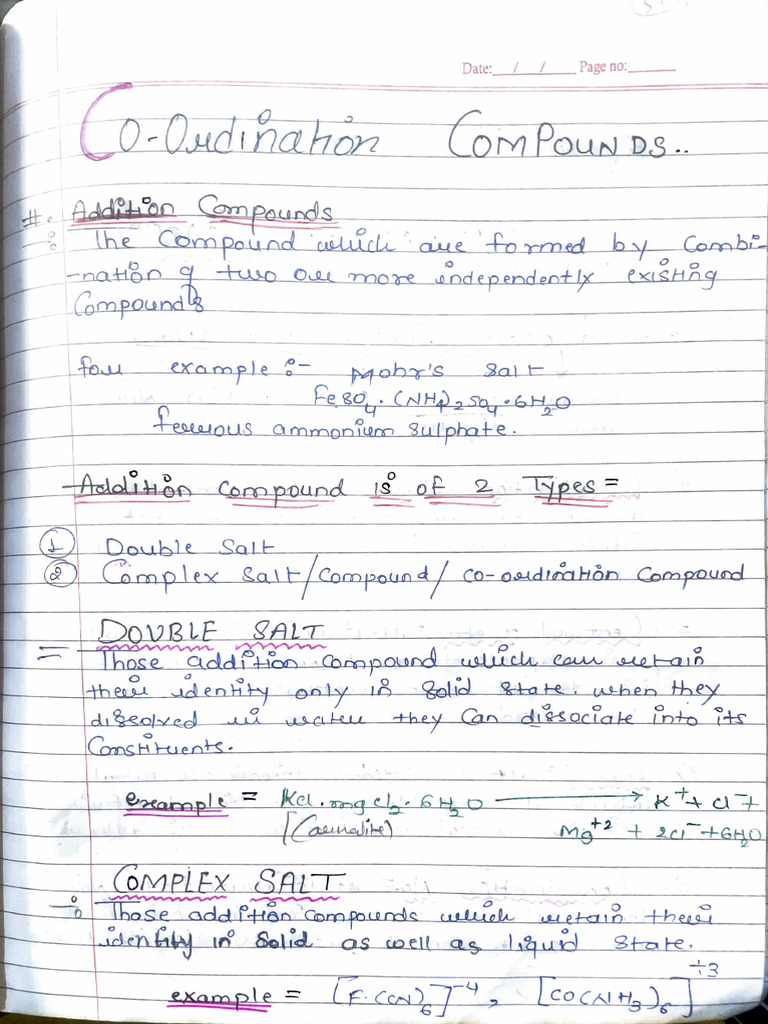 Date: / / Page no:
Co-Ordination Compounds..
#. Addition Compounds
The Compound which are formed by Combi-
-nation of two or more independently existing
Compounds
for example :- Mohr's salt
FeSO₄·(NH₄)₂SO₄·6H₂O
ferrous ammonium sulphate.
Addition compound is of 2 Types =
① Double Salt
② Complex Salt/compound/ co-ordination compound
= DOUBLE SALT
Those addition compound which can retain
their identity only in solid state. when they
dissolved in water they can dissociate into its
Constituents.
example = KCl.mgcl₂.6H₂O ⟶ K⁺ + Cl⁻ +
(Carnalite) Mg⁺² + 2Cl⁻ + 6H₂O
COMPLEX SALT
Those addition compounds which retain their
identity in solid as well as liquid state.
example = [F.(CN)₆]⁻⁴, [CO(NH₃)₆]⁺³